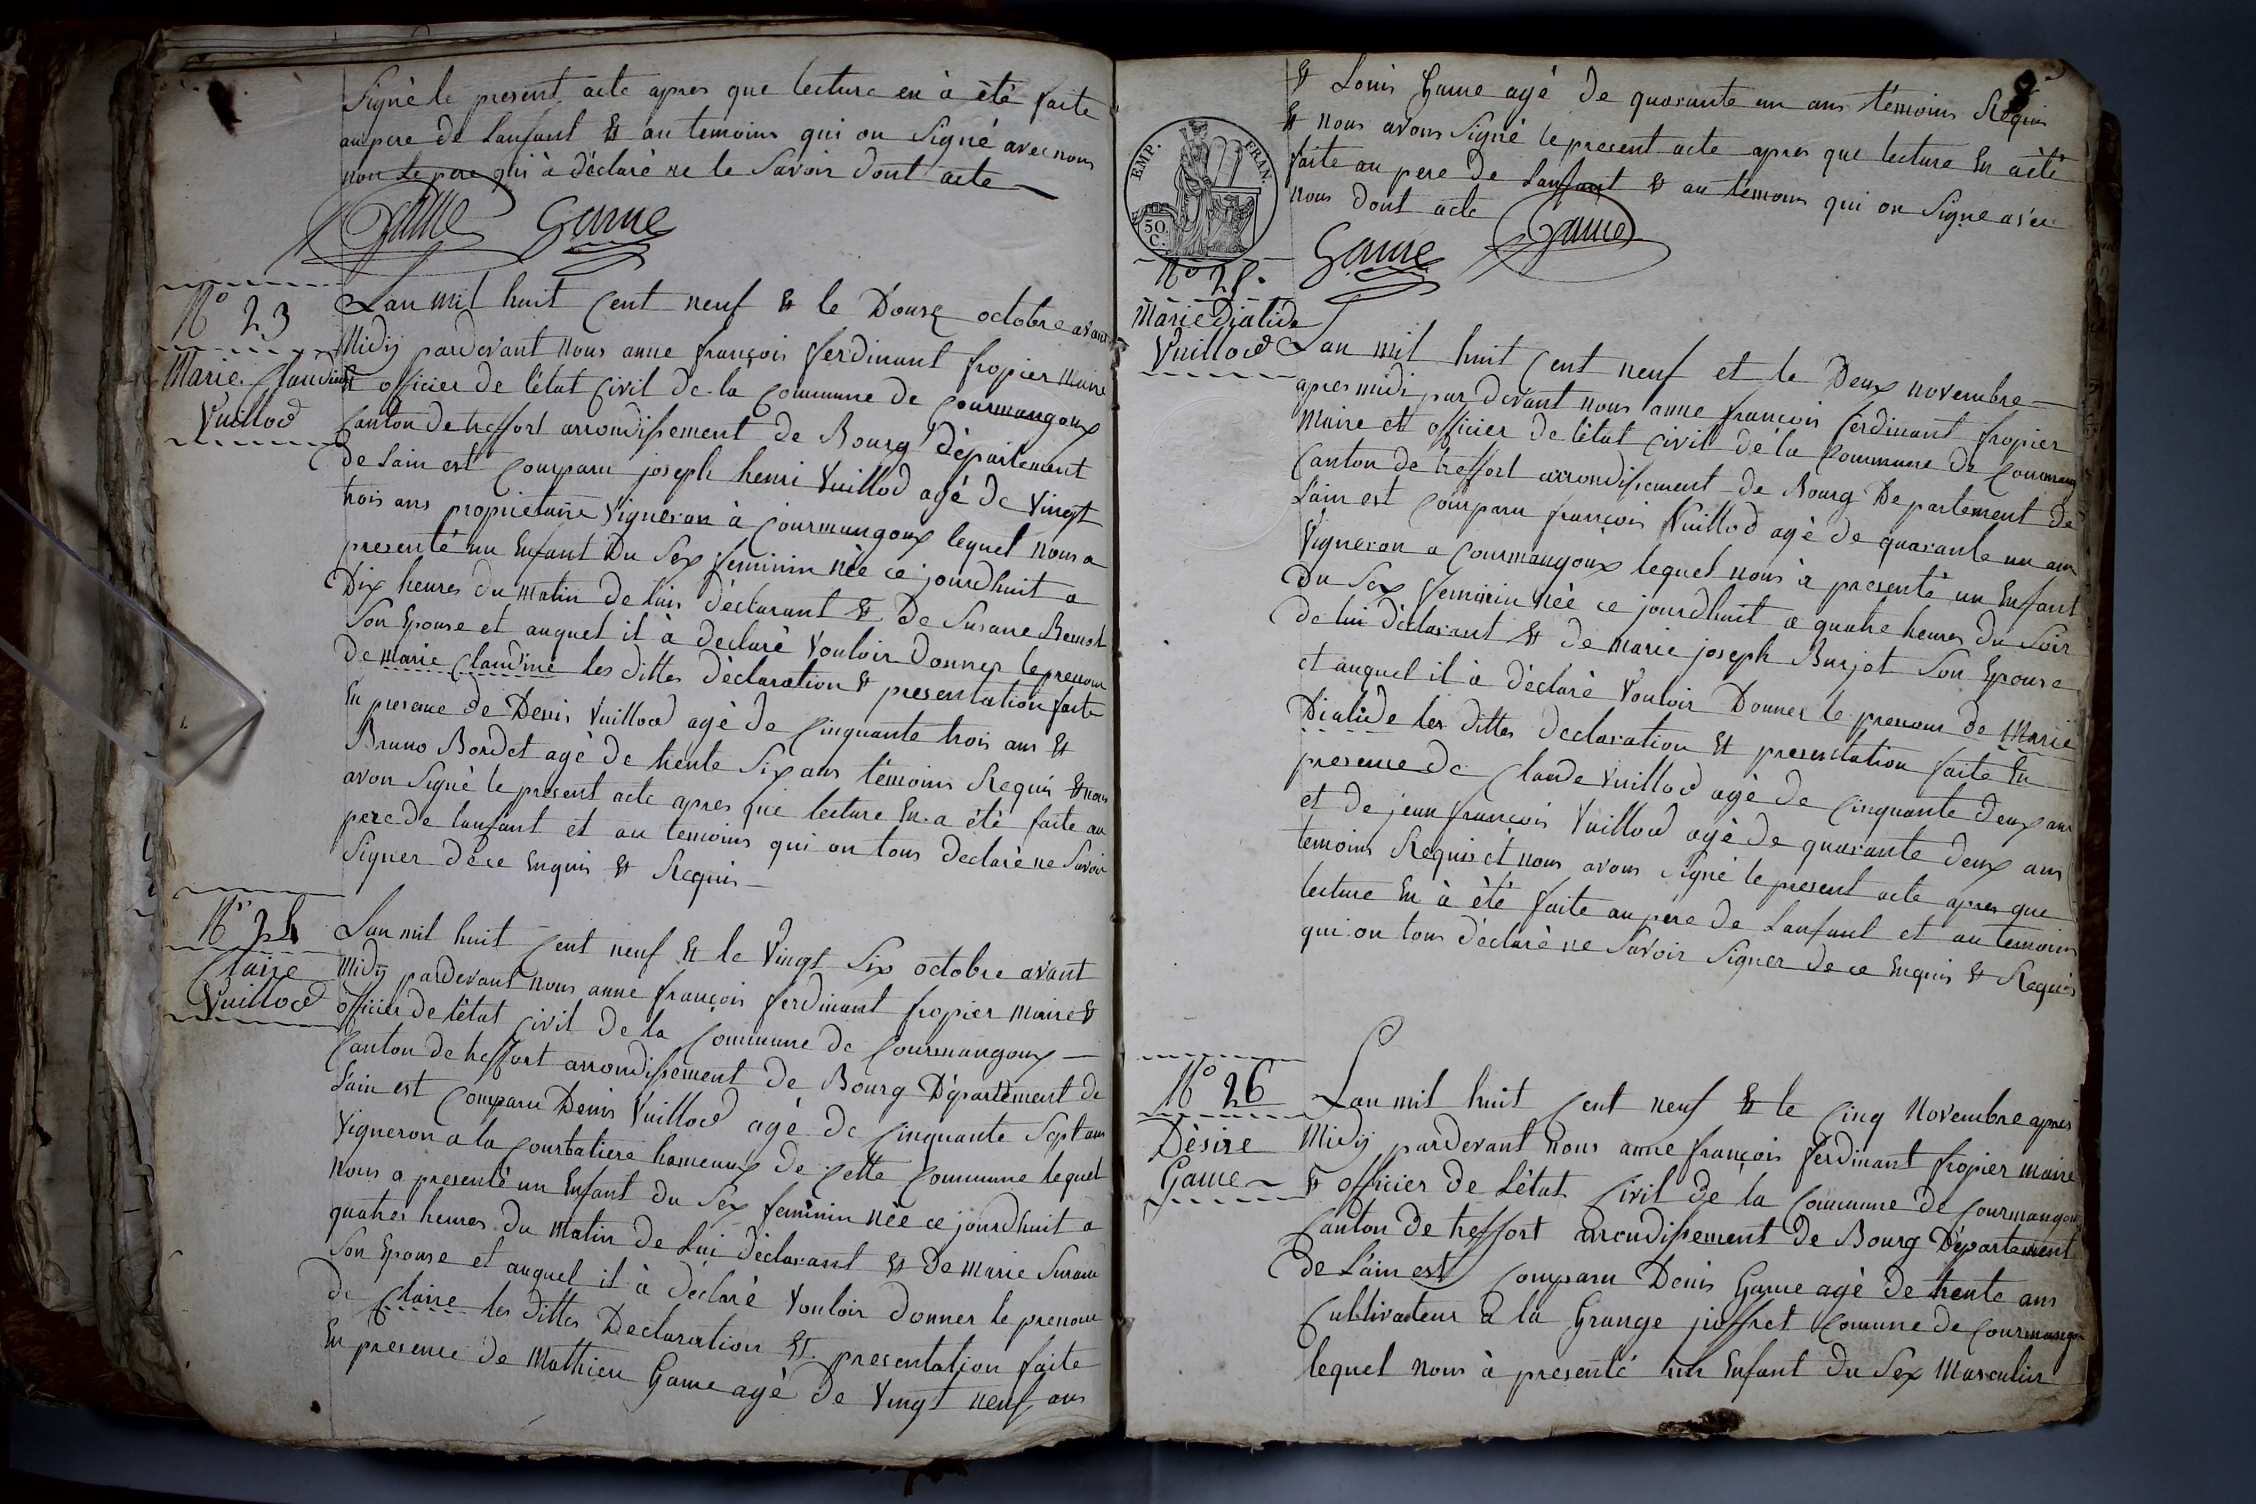 Signé le present acte apres que lecture en à été faite
au pere de Lanfant & au temoins qui on Signé avec nous
non Le pere qui à déclaré ne le Savoir dont acte
Game Game
N° 23
Marie Claudine
Vuillod
Lan mil huit Cent neuf & le Douze octobre avant
Midij pardevant nous anne françois ferdinant fropier maire
& officier de létat Civil de la Commune de Courmangoux
Canton de treffort arrondissement de Bourg département
de Lain est Comparu joseph henri Vuillod agé de Vingt
trois ans propriétaire Vigneron à Courmangoux lequel nous a
presenté un Enfant Du Sex feminin née ce jourdhuit a
Dix heures du matin de luis déclarant & De Susane
Son Epouse et auquel il à declaré Vouloir Donner le prenom
De marie Claudine les dittes déclaration & presentation faite
En presence de Denis Vuillod agé de Cinquante trois ans &
Bruno Bordet agé de trente Six ans témoins Requis & nous
avon Signé le present acte apres que lecture En a été faite au
pere de lanfant et au temoins qui on tous declaré ne Savoir
Signer déce Enquis & Requis
N° 24
Claire
Vuillod
Lan mil huit Cent neuf & le Vingt Six octobre avant
Midij pardevant nous anne françois ferdinant fropier maire &
officier de létat Civil de la Commune de Courmangoux
Canton de treffort arrondissement de Bourg Département de
Lain est Comparu Denis Vuillod agé de Cinquante Sept ans
Vigneron a la Courbatiere hameaux de Cette Commune lequel
nous a presenté un Enfant du Sex feminin née ce jourdhuit a
quatres heures du matin de Lui déclarant & de marie Susane
Son Epouse et auquel il à déclaré Vouloir donner le prenom
de Claire les dittes Declaration & presentation faite
En presence de Mathieu Game agé de Vingt neuf ans
8
& Louis Game agé de quarante un ans témoins Requis
& nous avons Signé le present acte apres que lecture En aété
faite au pere de Lanfant & au temoins qui on Signe avec
nous dont acte
Game Game
EMP. FRAN.
50 C.
N° 25.
Marie Dialide
Vuillod
Lan mil huit Cent neuf et le Deux novembre
apres midi par devant nous anne françois ferdinant fropier
Maire et officier de létat Civil dé la Commune de
Canton de treffort arrondissement de Bourg Departement De
Lain est Comparu françois Vuillod agé de quarante un ans
Vigneron a Courmangoux lequel nous à presenté un Enfant
Du Sex feminin née ce jourdhuit a quatre heures Du Soir
de lui déclarant & de marie joseph Burjot Son Epouse
et auquel il à déclaré Vouloir Donner le prenom de Marie
Dialide les dittes declaration & presentation faite En
presence de Claude Vuillod agé de Cinquante Deux ans
et de jean françois Vuillod agé de quarante deux ans
temoins Requis et nous avons Signé le present acte apres que
lecture En à été faite au pére de Lanfant et au temoins
qui on tous déclaré ne Savoir Signer de ce Enquis & Requis
N° 26
Désire
Game
Lan mil huit Cent neuf & le Cinq Novembre apres
Midij pardevant nous anne françois ferdinant fropier maire
& officier de Létat Civil de la Commune de Courmangoux
Canton de treffort arrondissement de Bourg Département
de Lain est Comparu Denis Game agé de trente ans
Cultivateur a la Grange joffret Comune de Courmangoux
lequel nous à presenté un Enfant du Sex Masculin